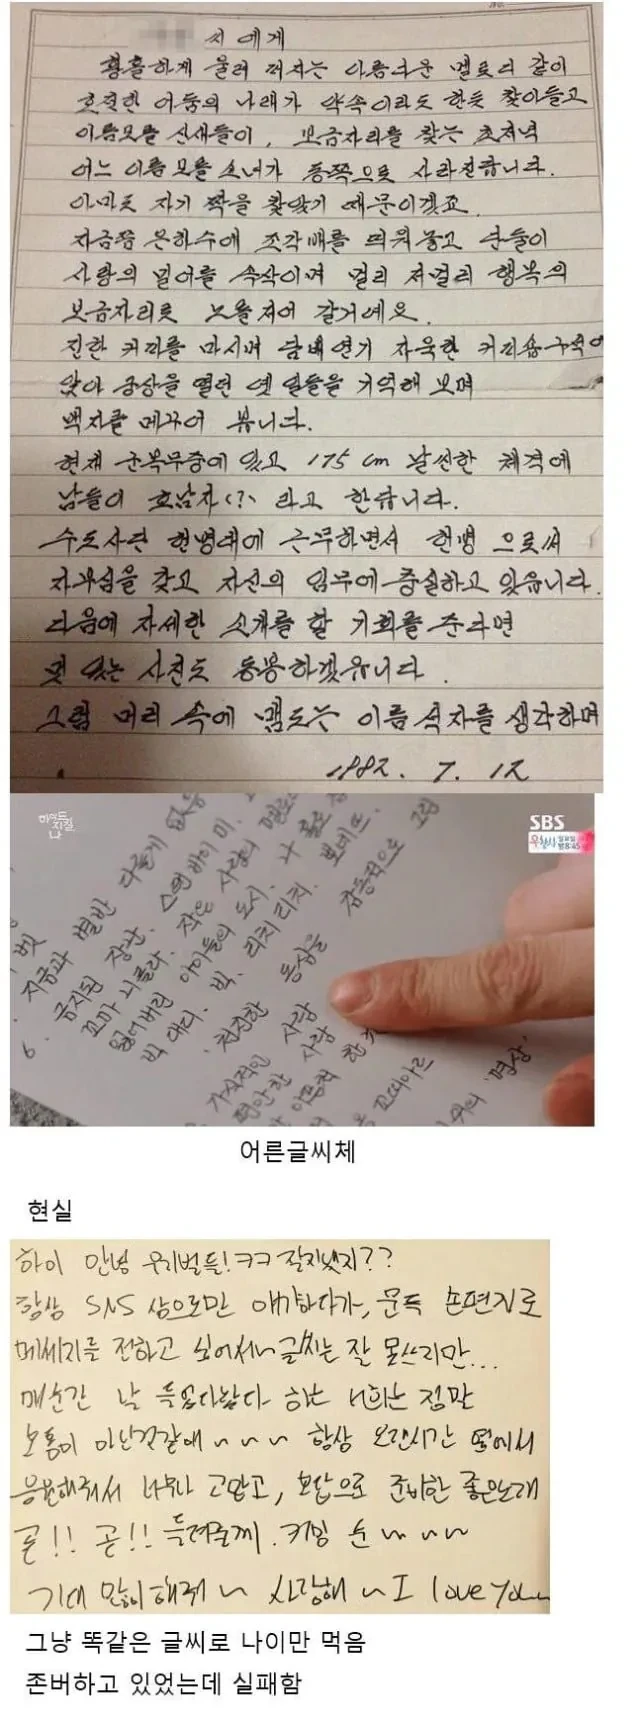 씨에게
황홀하게 울려 퍼지는 아름다운 멜로디 같이
호젓한 어둠의 나래가 약속이라도 한듯 찾아들고
이름모를 산새들이, 보금자리를 찾는 초저녁
어느 이름 모를 소녀가 동쪽으로 사라진답니다.
아마도 자기 짝을 찾았기 때문이겠죠.
지금쯤 은하수에 조각배를 띄워놓고 단둘이
사랑의 밀어를 속삭이며 멀리 저멀리 행복의
보금자리로 노를 저어 갈거예요.
진한 커피를 마시며 담배연기 자욱한 커피숍 구석에
앉아 궁상을 떨던 옛 일들을 기억해 보며
백지를 메꾸어 봅니다.
현재 군복무중에 있고 175 cm 날씬한 체격에
남들이 호남자(?) 라고 한답니다.
수도사단 헌병대에 근무하면서 헌병 으로써
자부심을 갖고 자신의 임무에 충실하고 있읍니다.
다음에 자세한 소개를 할 기회를 준다면
멋 있는 사진도 동봉하겠읍니다.
그럼 머리 속에 맴도는 이름 석자를 생각하며
1982. 7. 12
하이드
지킬
나
SBS
지금과 별반 다를게 없음
6. 금지된 장난. 스탠바이미.
꼬마 니콜라. 작은 사랑의 멜로디
잃어버린 아이들의 도시. 나 홀로
빅 대디. 빅. 리치리치. 포네뜨.
천진한 동심을 감동적으로 그림
가식적인 사람
편안한 사람
꼬띠아르
위의 '명상'
어른글씨체
현실
하이 안녕 우리벌들! ㅋㅋ 잘지냈지??
항상 SNS 상으로만 얘기하다가, 문득 손편지로
메세지를 전하고 싶어서~ 글씨는 잘 못쓰지만...
매순간 날 들었다놨다 하는 너희는 정말
보통이 아닌것같애~~~ 항상 오랜시간 옆에서
응원해줘서 너무나 고맙고, 보답으로 준비한 좋은노래
곧!! 곧!! 들려줄께. 커밍 순~~~
기대 많이해줘~ 사랑해~ I love you~
그냥 똑같은 글씨로 나이만 먹음
존버하고 있었는데 실패함